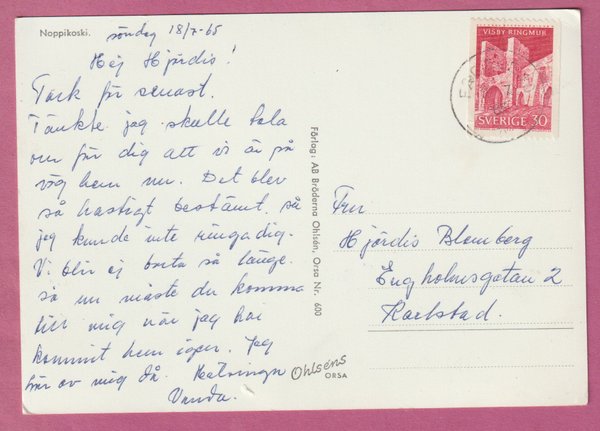 Noppikoski. söndag 18/7-65
Hej Hjördis!
Tack för senast.
Tänkte jag skulle tala
om för dig att vi är på
väg hem nu. Det blev
så hastigt bestämt, så
jag kunde inte ringa dig.
Vi blir ej borta så länge.
så nu måste du komma
till mig när jag har
kommit hem igen. Jag
hör av mig då. Hälsningar
Vanda.
Förlag: AB Bröderna Ohlsén, Orsa Nr. 600
Ohlséns
ORSA
VISBY RINGMUR
SVERIGE 30
Fru
Hjördis Blomberg
Engholmsgatan 2
Karlstad.